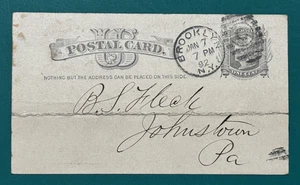 POSTAL CARD.
NOTHING BUT THE ADDRESS CAN BE PLACED ON THIS SIDE.
BROOKLYN
JAN 7
7 PM
82
N.Y.
B. S. Fleck
Johnstown
Pa